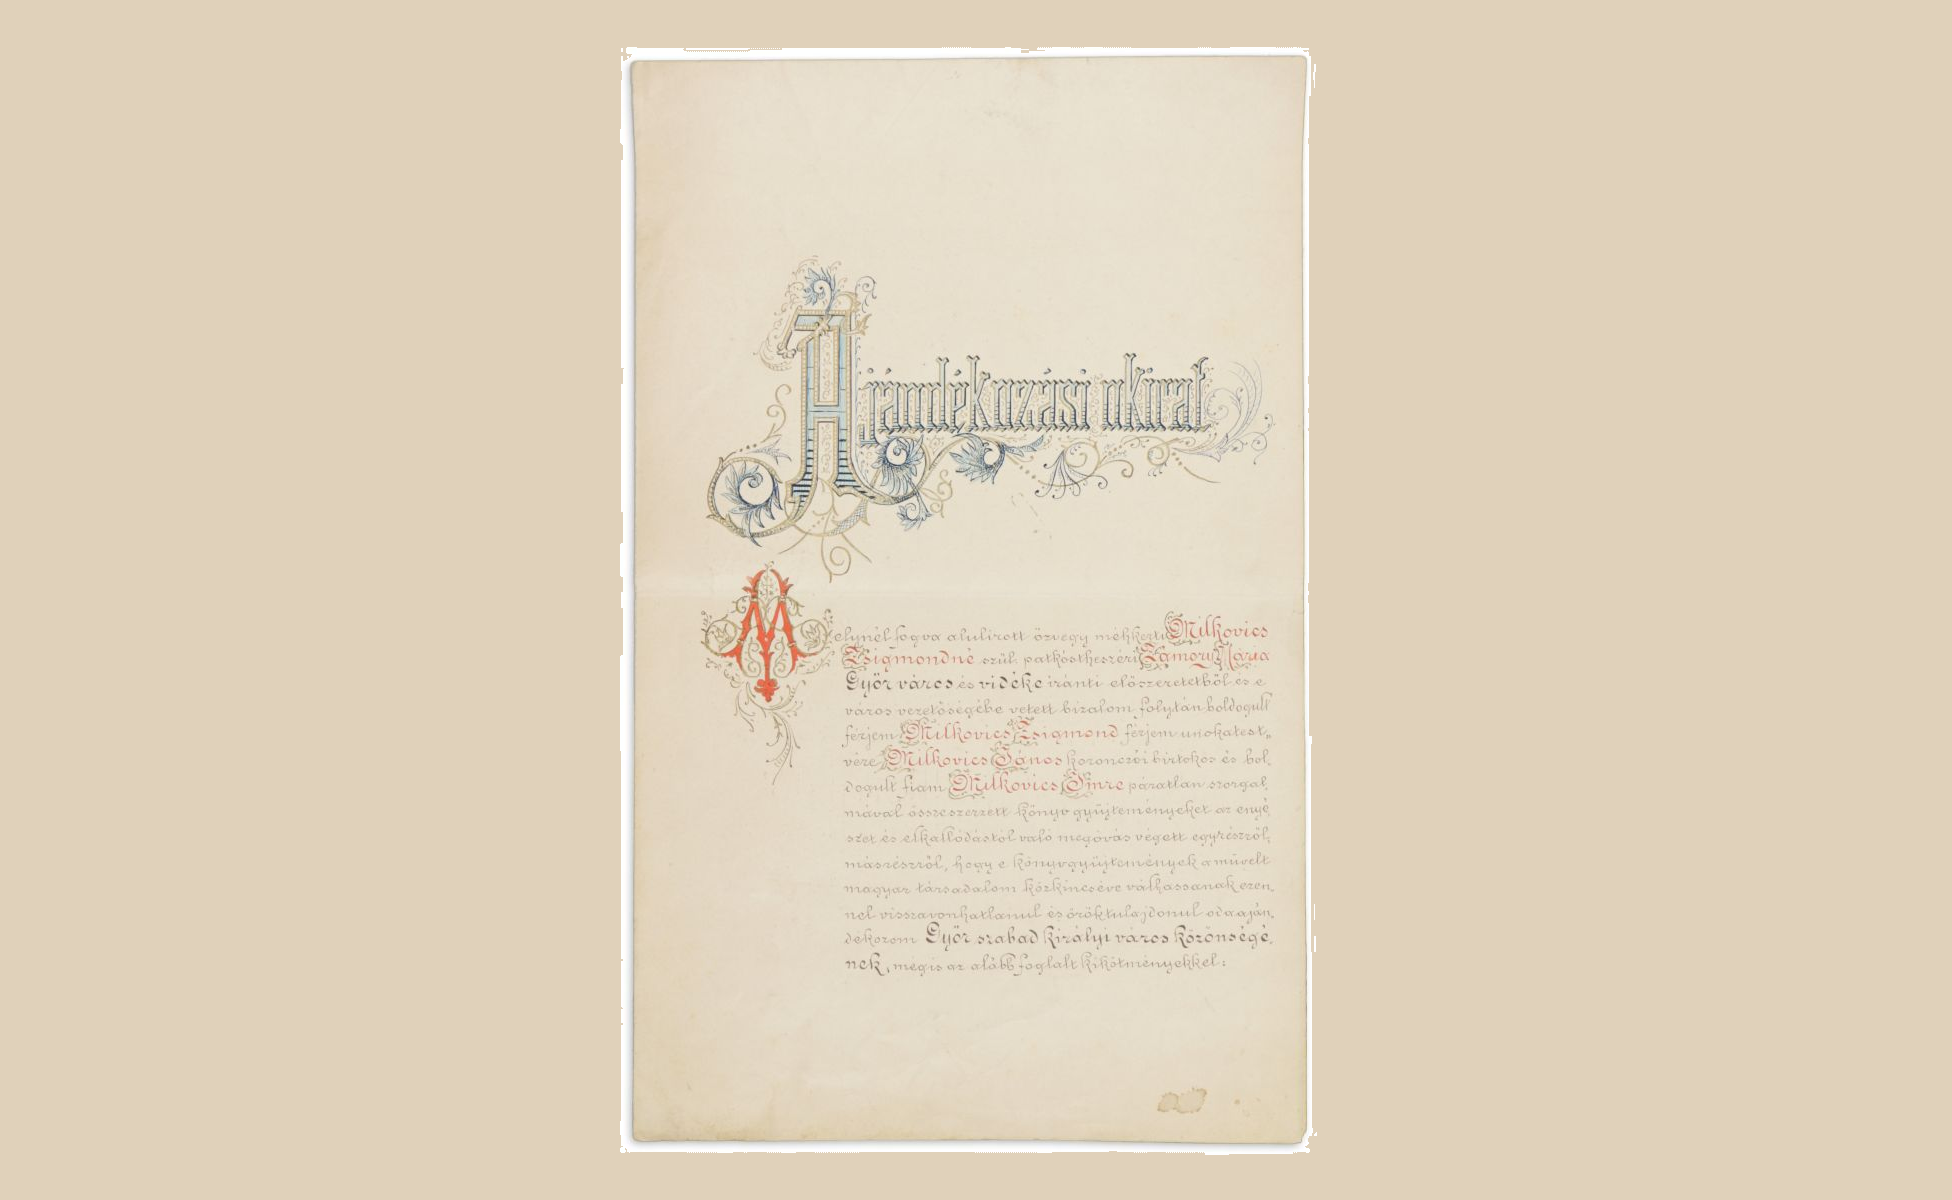 Ajándékozási okirat
Melynél fogva alulirott özvegy méhkerti Milkovics
Zsigmondné szül: patkóstheszéri Zámory Mária
Győr város és vidéke iránti előszeretetből és e
város vezetőségébe vetett bizalom folytán boldogult
férjem Milkovics Zsigmond férjem unokatest„
vére Milkovics János koronczói birtokos és bol„
dogult fiam Milkovics Imre páratlan szorgal„
mával összeszerzett könyv gyüjteményeket az enyé„
szet és elkallódástól való megóvás végett egyrészről,
másrészről, hogy e könyvgyüjtemények a müvelt
magyar társadalom közkincséve válhassanak ezen„
nel visszavonhatlanul és öröktulajdonul odaaján„
dékozom Győr szabad királyi város közönségé„
nek, mégis az alább foglalt kikötményekkel: